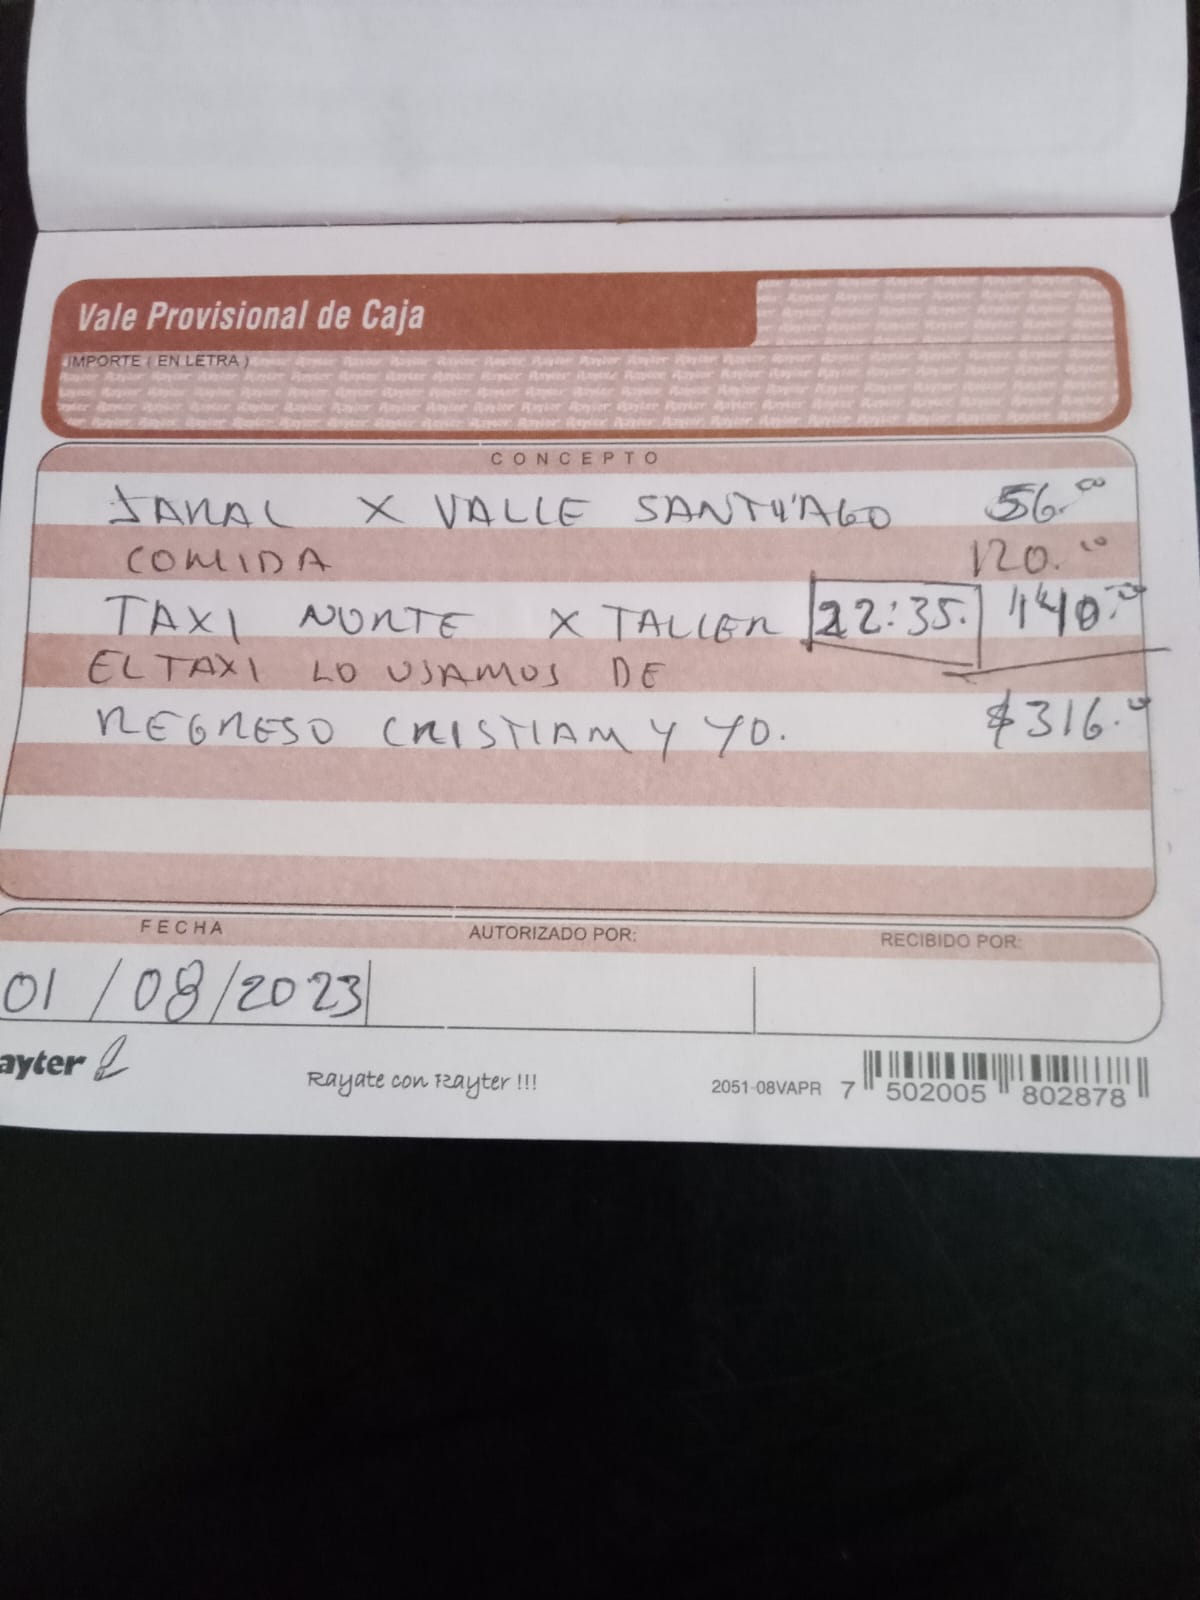 Vale Provisional de Caja
IMPORTE ( EN LETRA )
CONCEPTO
JARAL X VALLE SANTIAGO 56.00
COMIDA 120.00
TAXI NORTE X TALLER 22:35. 140.00
EL TAXI LO USAMOS DE
REGRESO CRISTIAM Y YO. $316.00
FECHA AUTORIZADO POR: RECIBIDO POR:
01/08/2023
ayter Rayate con Rayter !!! 2051-08VAPR 7 502005 802878